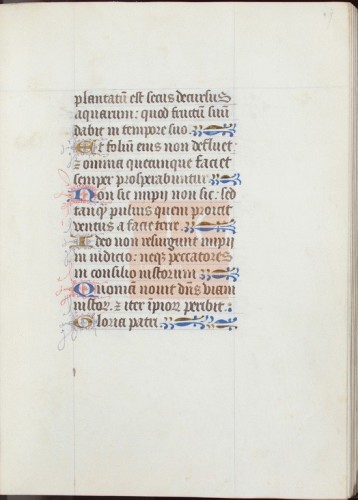 plantatū est secus decursus
aquarum: quod fructū suū
dabit in tempore suo.
Et foliū eius non defluet:
⁊ omnia quecunque faciet
semper prosperabuntur.
Non sic impii non sic: sed
tanq̄ puluis quem proicit
ventus a facie terre.
Ideo non resurgunt impii
in iudicio: neq̄ peccatores
in consilio iustorum
Quoniam nouit dn̄s viam
iustor. ⁊ iter īpior peribit.
Gloria patri.